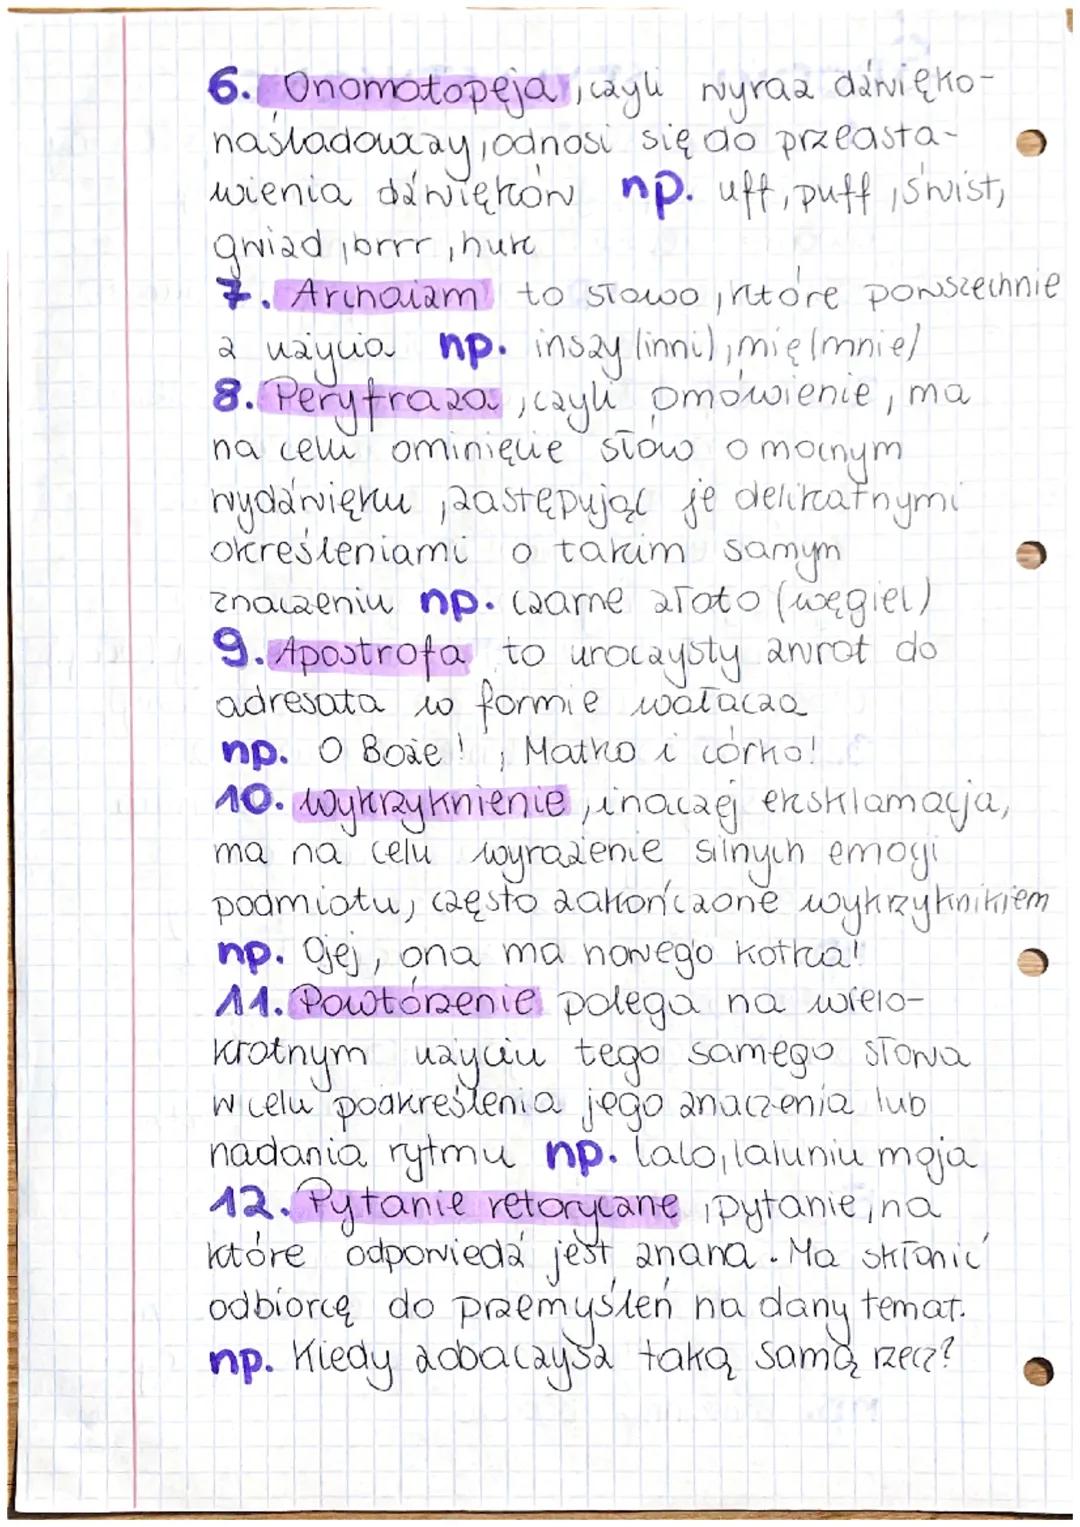 6. Onomatopeja, czyli wyraz dźwięko-
naśladowczy, odnosi się do przedsta-
wienia dźwięków np. uff, puff, świst,
gwizd, brrr, huk
7. Archaizm to słowo, które powszechnie
z użycia np. inszy (inni), mię (mnie)
8. Peryfraza, czyli omówienie, ma
na celu ominięcie słów o mocnym
wydźwięku, zastępując je delikatnymi
określeniami o takim samym
znaczeniu np. czarne złoto (węgiel)
9. Apostrofa to uroczysty zwrot do
adresata w formie wołacza
np. O Boże!, Matko i córko!
10. Wykrzyknienie, inaczej eksklamacja,
ma na celu wyrażenie silnych emocji
podmiotu, często zakończone wykrzyknikiem
np. Ojej, ona ma nowego kotka!
11. Powtórzenie polega na wielo-
krotnym użyciu tego samego słowa
w celu podkreślenia jego znaczenia lub
nadania rytmu np. lalo, laluniu moja
12. Pytanie retoryczne, pytanie, na
które odpowiedź jest znana. Ma skłonić
odbiorcę do przemyśleń na dany temat.
np. Kiedy zobaczysz taką samą rzecz?